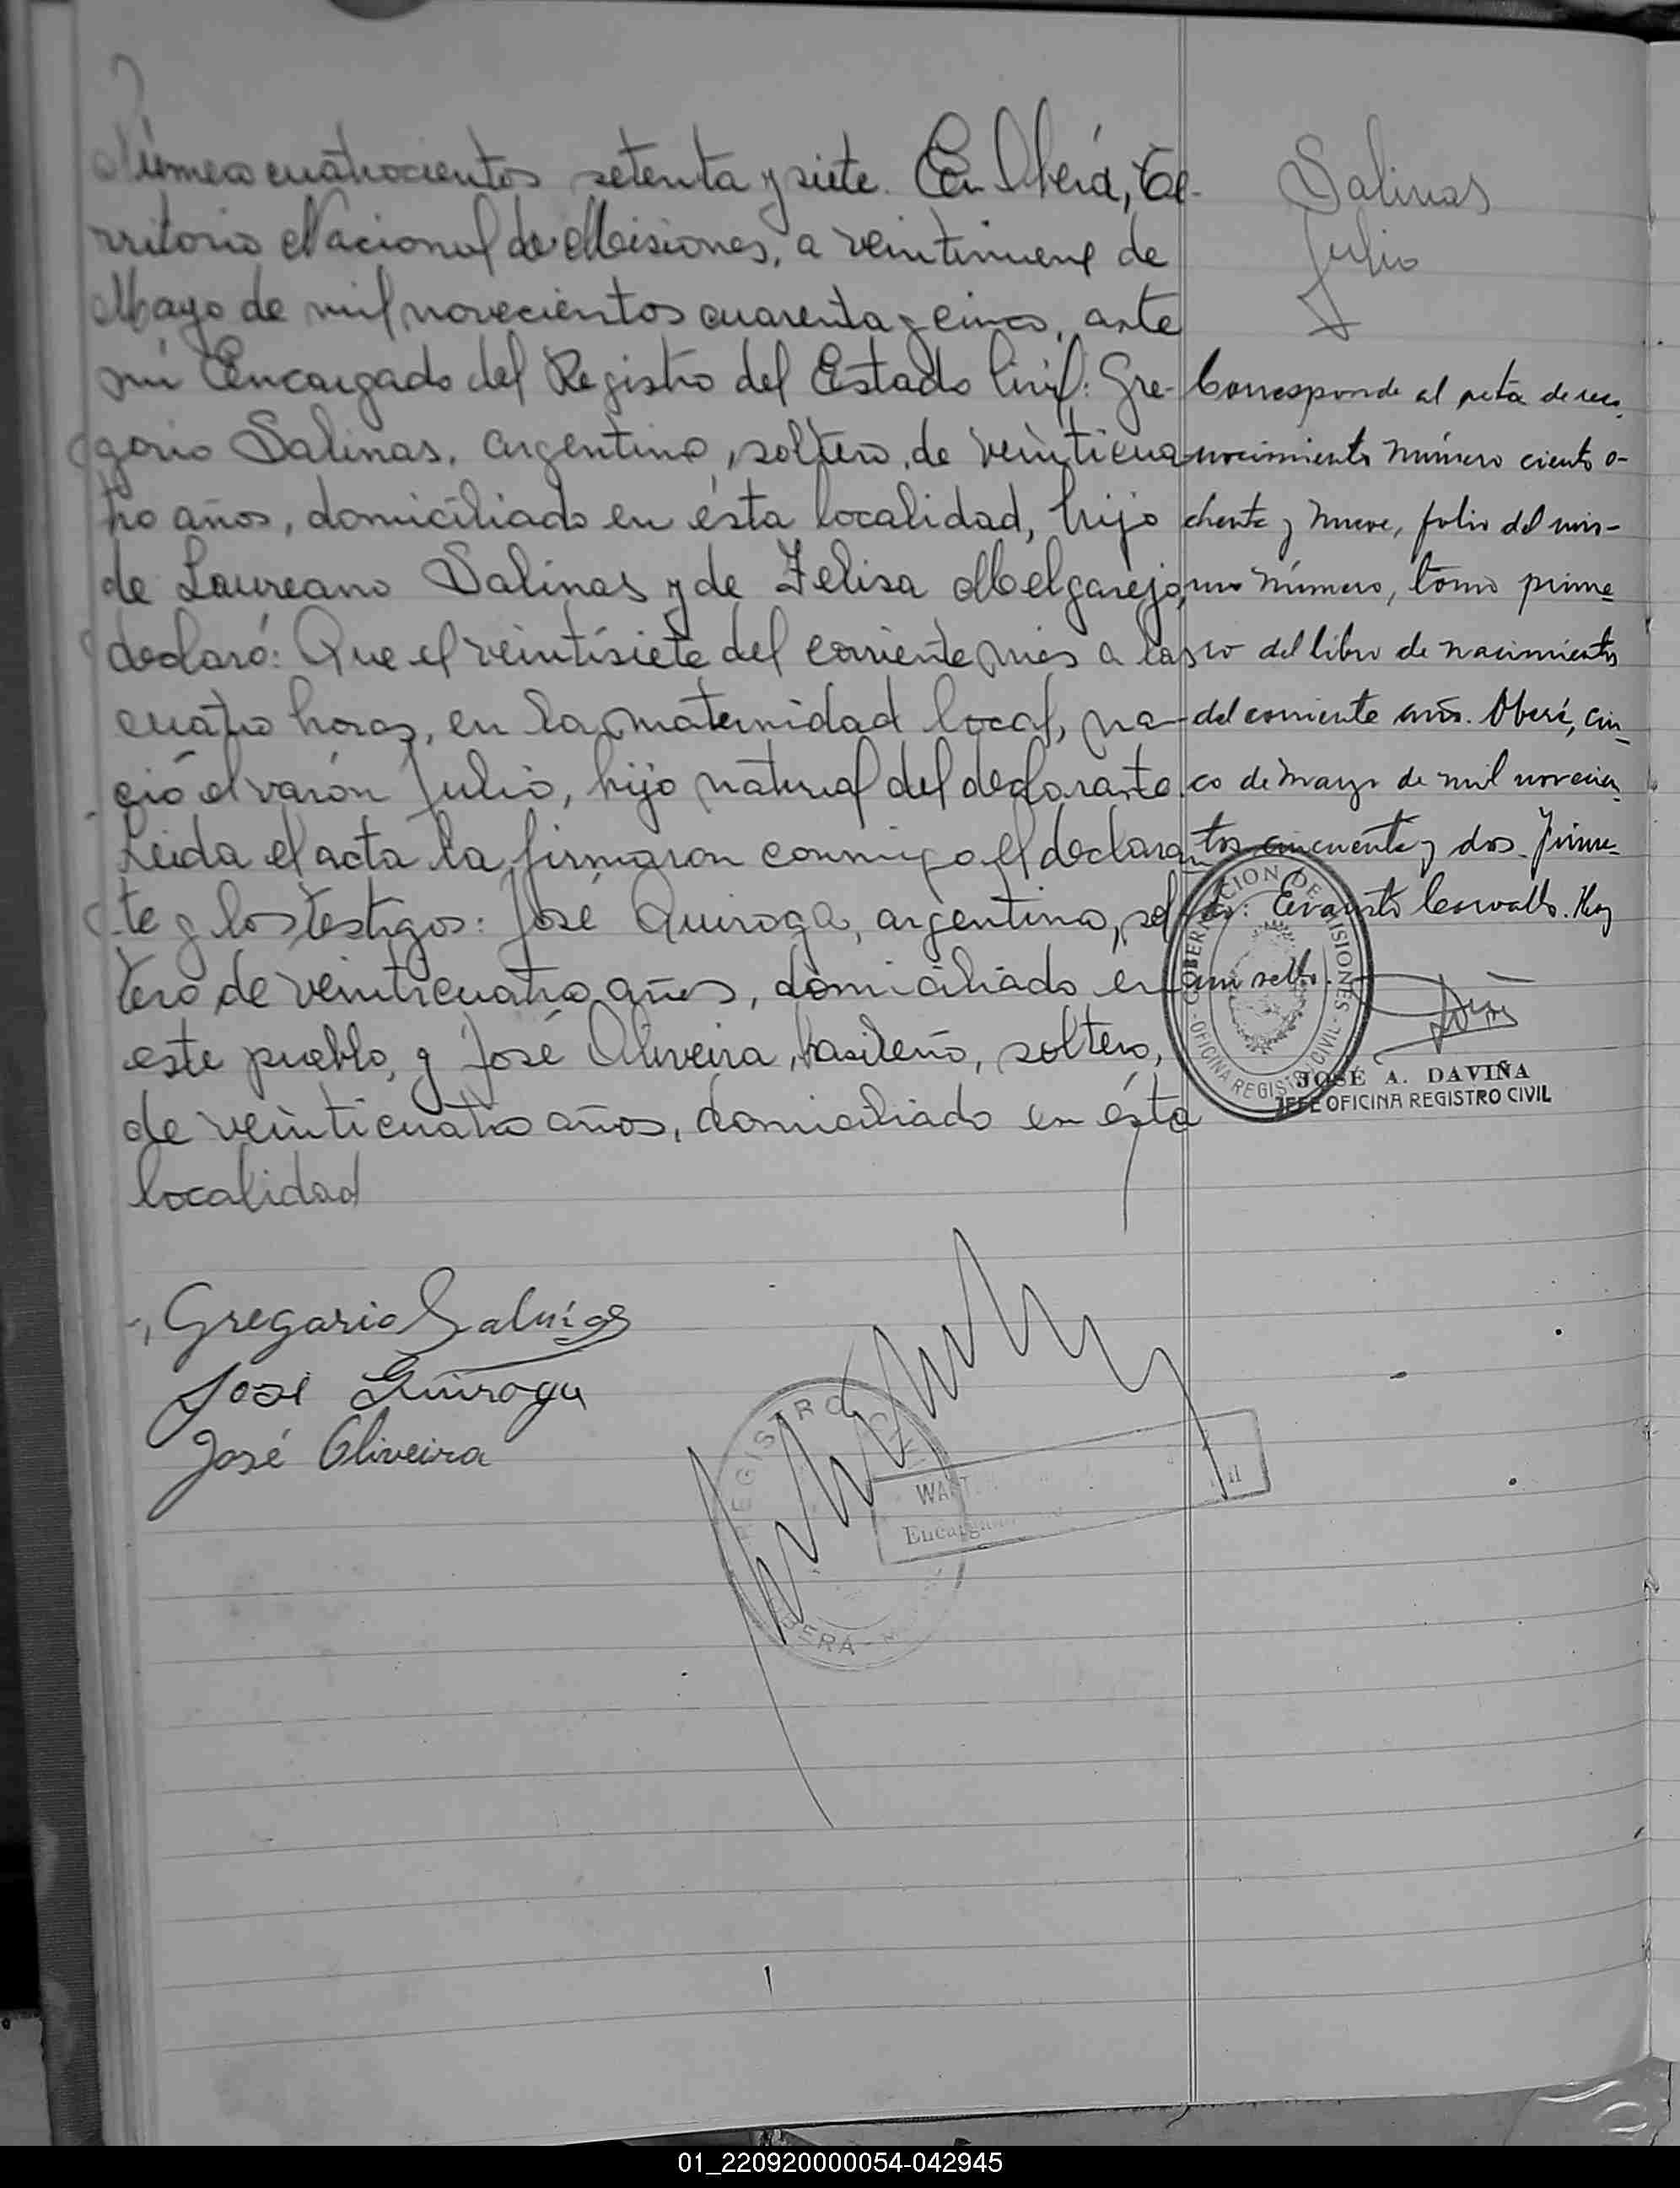 Número cuatrocientos setenta y siete. En Oberá, Te-
rritorio Nacional de Misiones, a veintinueve de
Mayo de mil novecientos cuarenta y cinco, ante
mí Encargado del Registro del Estado Civil: Gre-
gorio Salinas, argentino, soltero, de veinticua
tro años, domiciliado en ésta localidad, hijo
de Laureano Salinas y de Felisa Melgarejo,
declaró: Que el veintisiete del corriente mes a las
cuatro horas, en la maternidad local, na-
ció el varón Julio, hijo natural del declarante.
Leida el acta la firmaron conmigo el declaran
te y los testigos: José Quiroga, argentino, sol
tero de veinticuatro años, domiciliado en
este pueblo, y José Oliveira, brasileño, soltero,
de veinticuatro años, domiciliado en ésta
localidad
Gregario Salinas
José Quiroga
José Oliveira
REGISTRO CIVIL
OBERÁ
Encargado
Salinas
Julio
Corresponde al acta de reco
nocimiento número ciento o-
chenta y nueve, folio del mis-
mo número, tomo prime
ro del libro de nacimientos
del corriente año. Oberá, cin
co de Marzo de mil novecien
tos cincuenta y dos. Firma-
do: Evaristo Carvallo. Hay
un sello.
GOBERNACION DE MISIONES
OFICINA REGISTRO CIVIL
JOSÉ A. DAVIÑA
JEFE OFICINA REGISTRO CIVIL
01_220920000054-042945